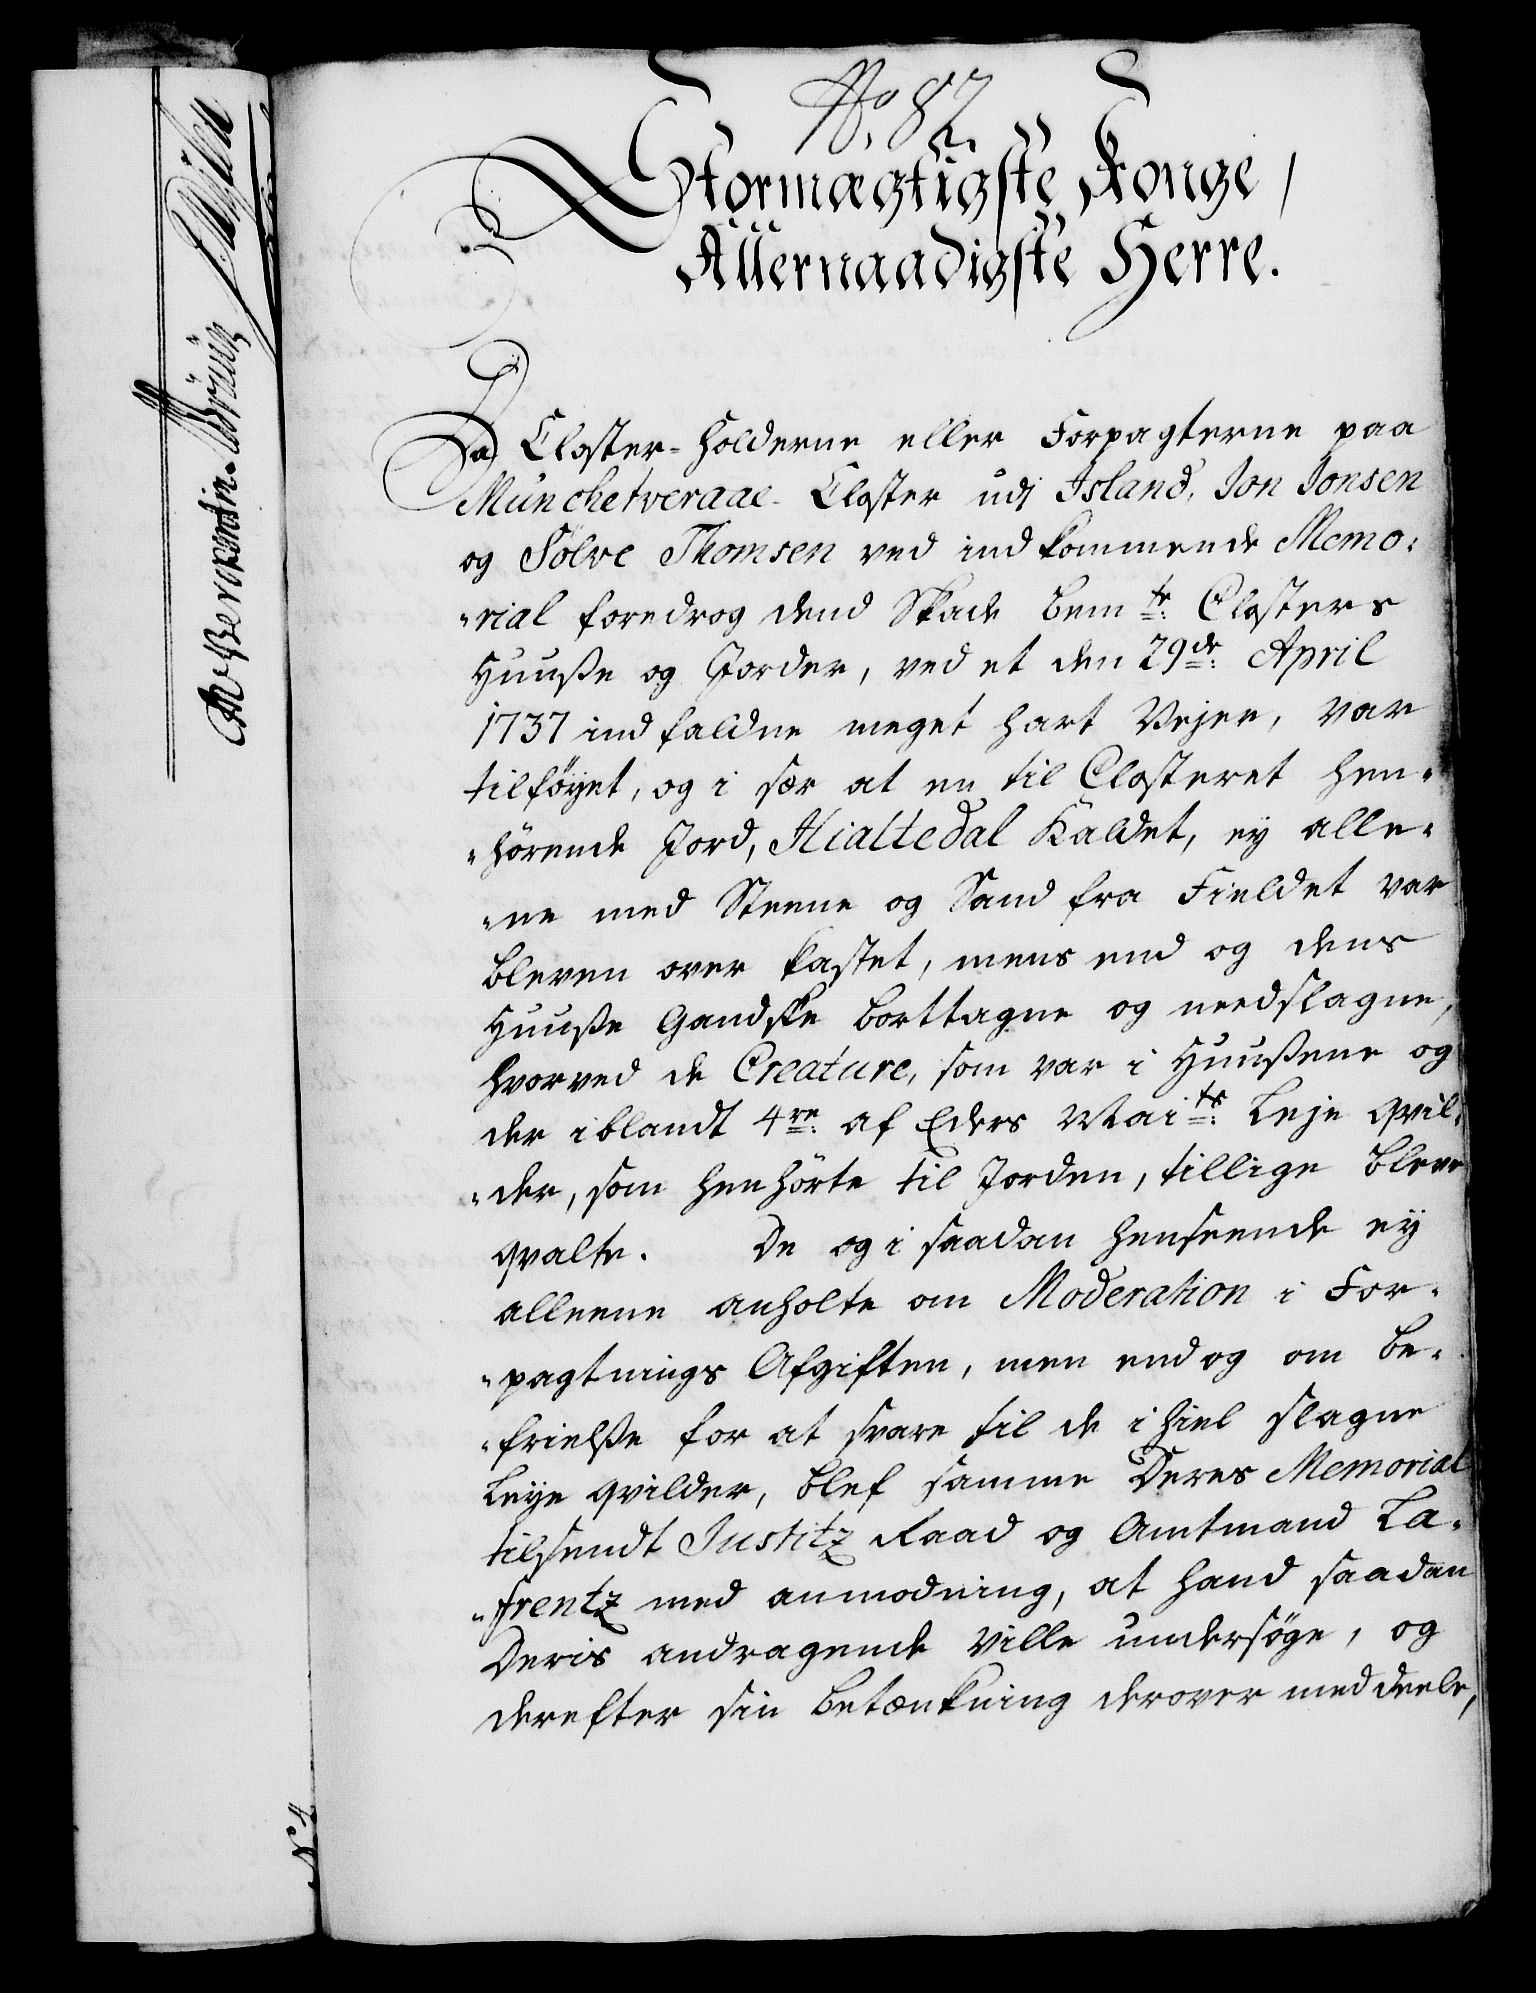 No. 82.
Stormægtigste Konge,
Allernaadigste Herre.
Da Closter-Holderne eller Forpagterne paa
Münchetveraae Closter udj Island, Jon Jonsen
og Sölve Thomsen ved indkommende Memo-
-rial foredrog dend Skade bem.te Closters
Huuße og Jorder, ved et den 29de April
1737 indfaldne meget hart Vejer, var
tilföyet, og i sær at en til Closteret hen-
-hörende Jord, Hialtedal Kaldet, ey alle-
-ne med Steene og Sand fra Fieldet var
bleven over kastet, mens end og dens
Huuße Gandske borttagne og needslagne,
hvorved de Creature, som var i Huußene og
der iblandt 4re af Eders Mai.ts Leje qvil-
-der, som henhörte til Jorden, tillige bleve
qvalte. De og i saadan henseende ey
alleene anholte om Moderation i For-
-pagtnings Afgiften, men endog om be-
-frielße for at svare til de ihiel slagne
Leye qvilder, blef samme Deres Memorial
tilsendt Justitz Raad og Amtmand La-
-frentz med anmodning, at hand saadan
Deris andragende ville undersöge, og
derefter sin betænkning derover meddeele,